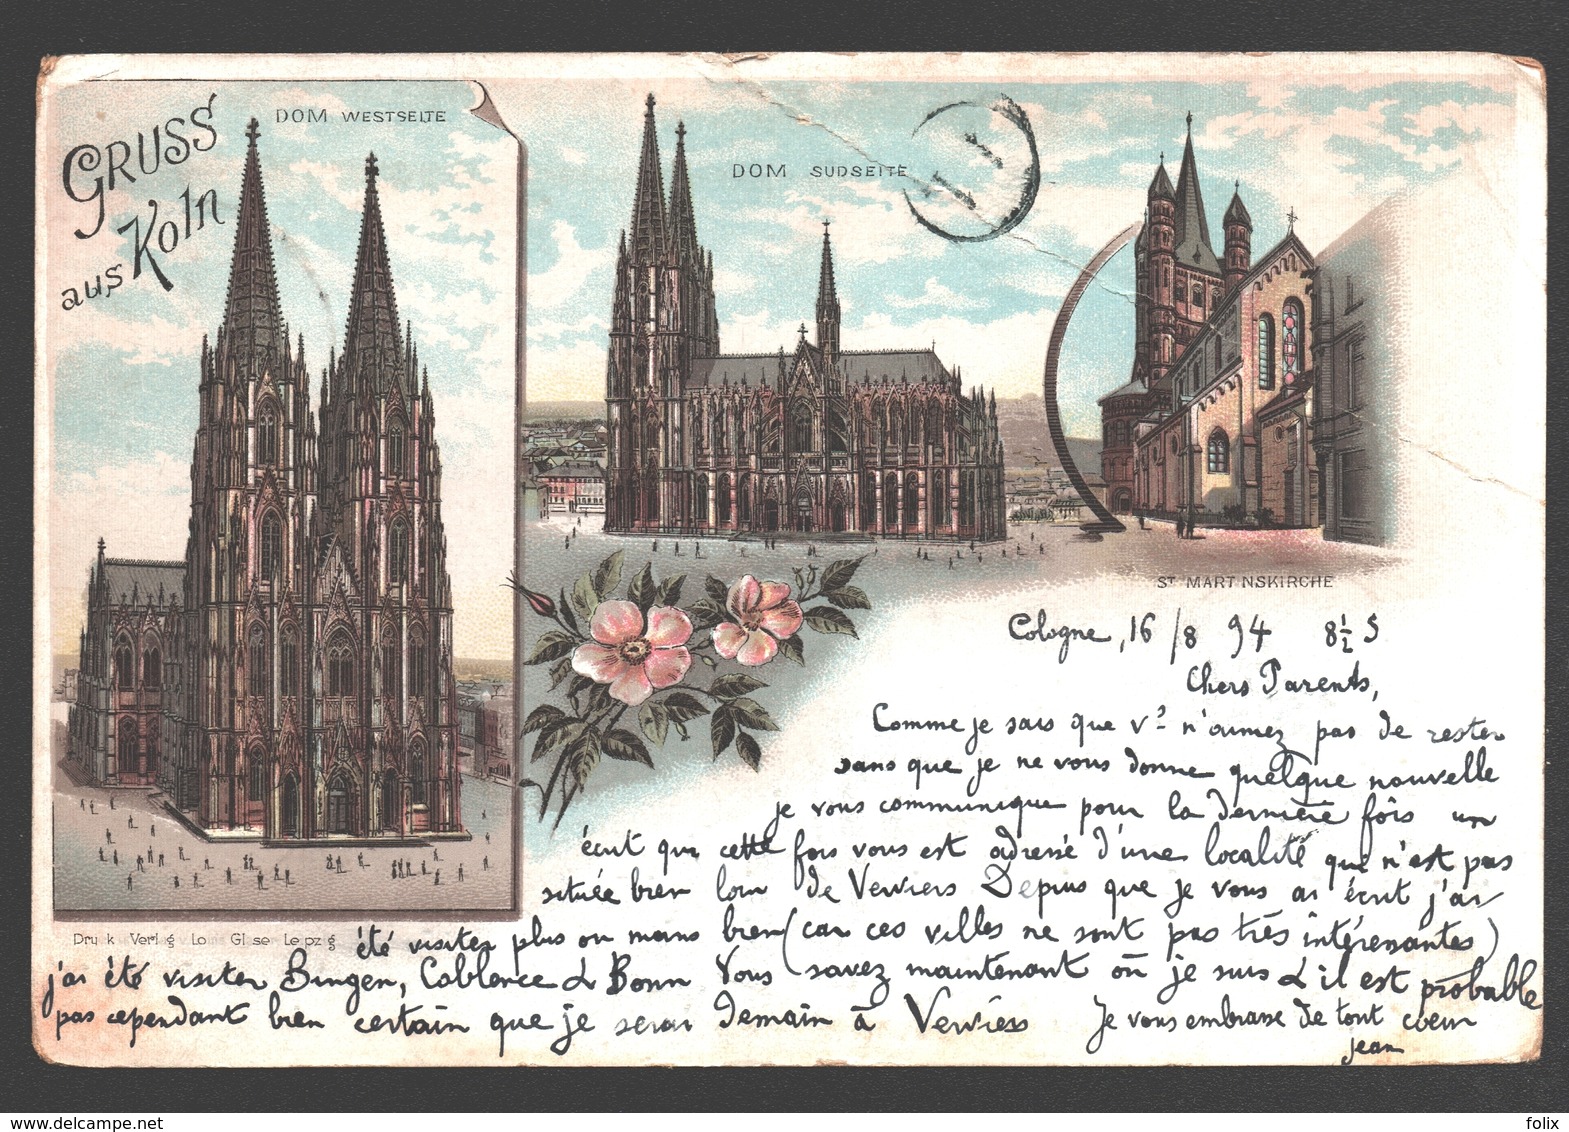 GRUSS
aus Koln
DOM WESTSEITE
DOM SUDSEITE
ST MARTINSKIRCHE
Cologne, 16/8 94 8½ S
Chers Parents,
Comme je sais que vs n'aimez pas de rester
sans que je ne vous donne quelque nouvelle
je vous communique pour la dernière fois un
écrit qui cette fois vous est adressé d'une localité qui n'est pas
située bien loin de Verviers Depuis que je vous ai écrit j'ai
été visiter plus ou moins bien (car ces villes ne sont pas très intéressantes)
j'ai été visiter Bingen, Coblence & Bonn Vous savez maintenant où je suis & il est probable
pas cependant bien certain que je serai demain à Verviers Je vous embrasse de tout coeur
Jean
Druck Verlag Louis Glaser Leipzig
folix